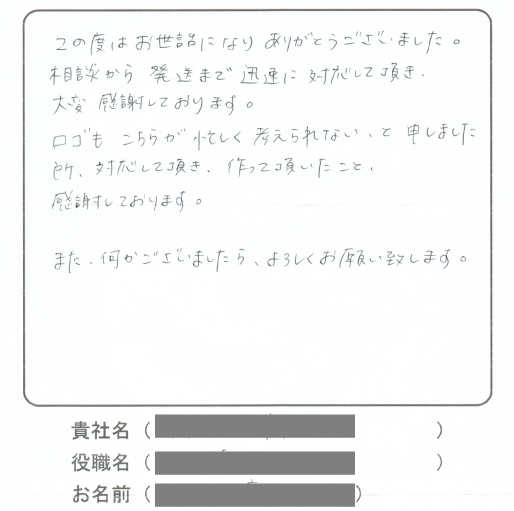 この度はお世話になり ありがとうございました。
相談から 発送まで 迅速に 対応して頂き、
大変 感謝しております。
ロゴも こちらが 忙しく 考えられない、と 申しました
所、対応して頂き、作って頂いたこと、
感謝しております。
また、何かございましたら、よろしくお願い致します。
貴社名（　　　　）
役職名（　　　　）
お名前（　　　　）